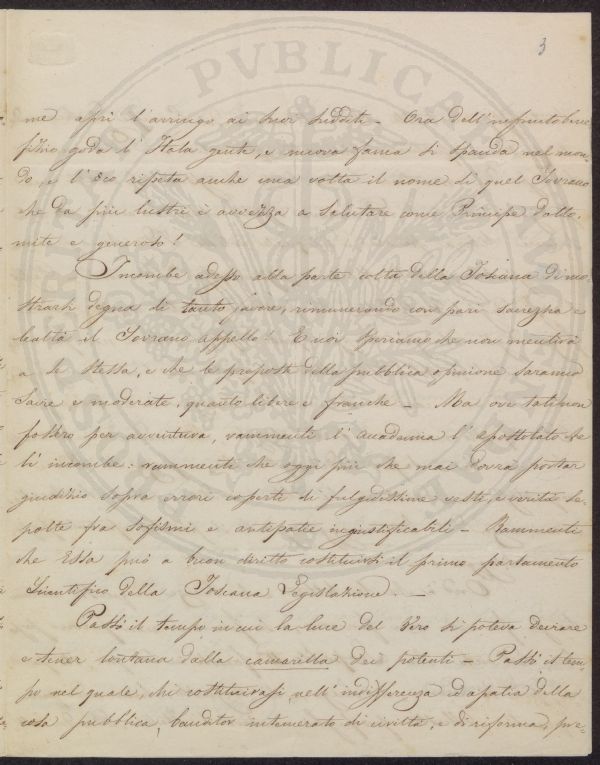 3
me aprì l'arringo ai suoi sudditi – Ora dell'inefruito bene
fizio goda l'Itala gente, e nuova fama si spanda nel mon-
do, e l'eco ripeta anche una volta il nome di quel Sovrano
che da più lustri è avvezza a salutare come Principe dotto,
mite e generoso!
Incombe adesso alla parte colta della Toscana dimo-
strarsi degna di tanto favore, rimunerando con pari saviezza e
lealtà il Sovrano appello! E noi speriamo che non mentirà
a se stessa, e che le proposte della pubblica opinione saranno
savie e moderate, quanto libere e franche – Ma ove tali non
fossero per avventura, rammenti l'accademia l'apostolato che
le incombe: rammenti che oggi più che mai dovrà portar
giudizio sopra errori coperti di fulgidissime vesti, e verità se-
polte fra sofismi e antipatie ingiustificabili – Rammenti
che Essa può a buon diritto costituirsi il primo parlamento
Scientifico della Toscana Legislazione. –
Passò il tempo in cui la luce del Vero si poteva deviare
e tener lontana dalla camarilla dei potenti – Passò il tem-
po nel quale, chi costituivasi, nell'indifferenza ed apatia della
cosa pubblica, banditor intemerato di civiltà, e di riforma, pre-